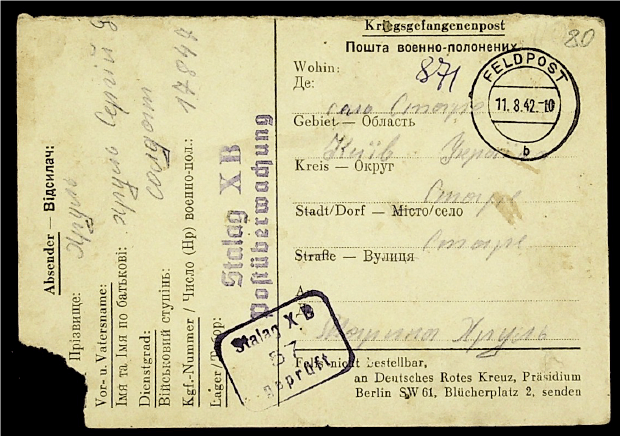 Kriegsgefangenenpost
80
Пошта военно-полонених
871
Wohin:
Де:
село Старе
Gebiet — Область
Київ
Kreis — Округ
Старе
Stadt/Dorf — Місто/село
Старе
Straße — Вулиця
Хруль
bestellbar,
an Deutsches Rotes Kreuz, Präsidium
Berlin SW 61, Blücherplatz 2, senden
FELDPOST
11.8.42.-10
b
Absender — Відсилач:
Хруль
Прізвище:
Vor- u. Vatersname:
Сергій
Імя та Імя по батькові:
Dienstgrad:
Військовий ступінь:
17847
Kgf.-Nummer / Число (Нр) военно-пол.:
Lager/
Stalag X B
Postüberwachung
Stalag X-B
57
geprüft